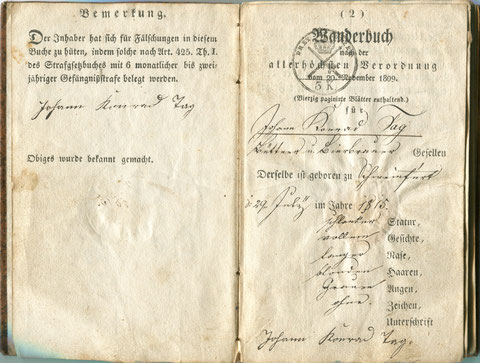 Bemerkung.
Der Inhaber hat sich für Fälschungen in diesem
Buche zu hüten, indem solche nach Art. 425. Th. I.
des Strafgesetzbuches mit 6 monatlicher bis zwei-
jähriger Gefängnißstrafe belegt werden.
Johann Konrad Tag
Obiges wurde bekannt gemacht.
(2)
Wanderbuch
nach der
allerhöchsten Verordnung
vom 20. November 1809.
3 K.
(Vierzig paginirte Blätter enthaltend.)
für
Johann Konrad Tag
Büttner u. Bierbrauer Gesellen
Derselbe ist geboren zu Schweinfurt
d. 29. July im Jahre 1815.
schlanker Statur,
vollem Gesichte,
langer Nase,
blonden Haaren,
Augen,
ohne Zeichen,
Unterschrift
Johann Konrad Tag.